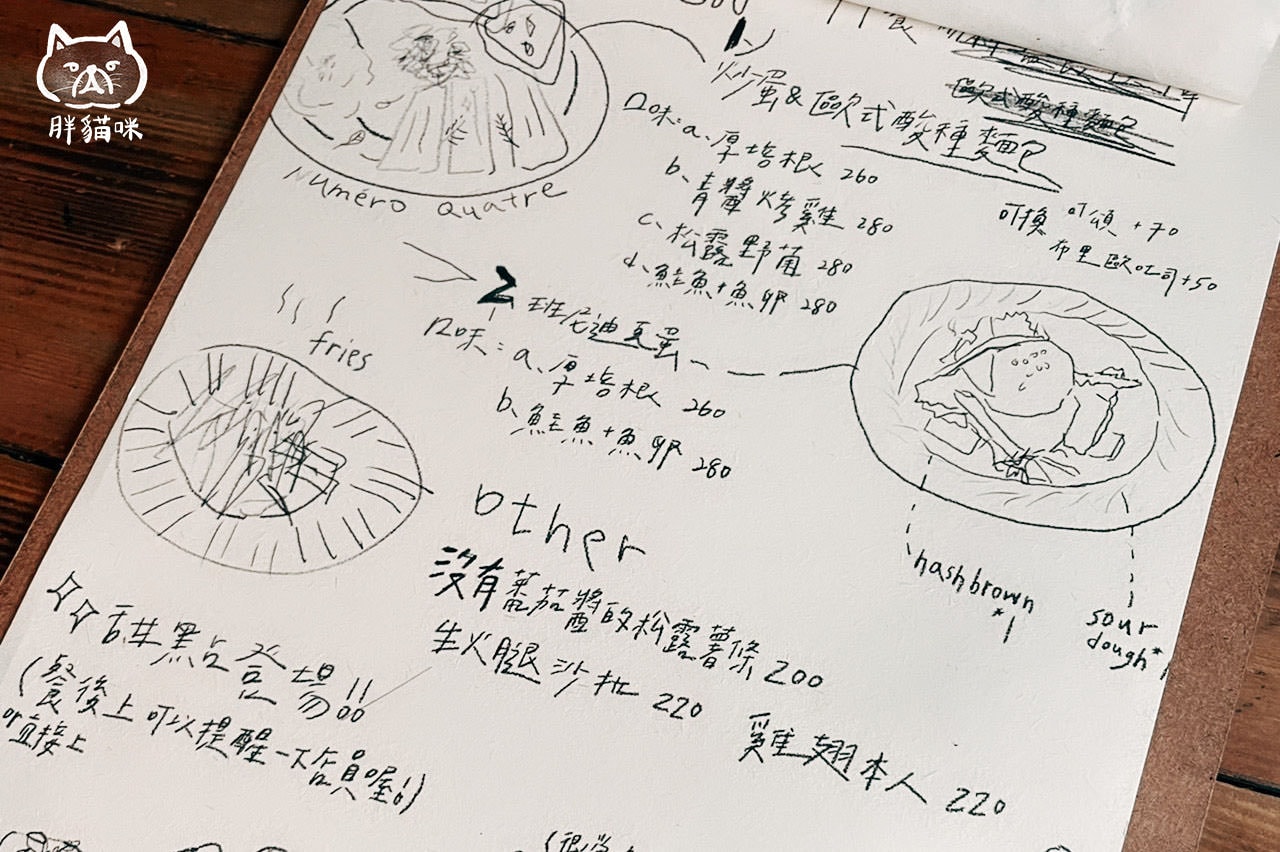 胖貓咪
炒蛋&歐式酸種麵包
歐式酸種麵包
口味:a、厚培根 260
b、青醬烤雞 280
c、松露野菇 280
d、鮭魚+魚卵 280
可換 可頌 +70
布里歐吐司+50
Numéro Quatre
2 班尼迪克蛋
口味:a、厚培根 260
b、鮭魚+魚卵 280
fries
hashbrown
*1
sour
dough*1
other
沒有蕃茄醬的松露薯條 200
生火腿沙拉 220
雞翅本人 220
甜點登場!!
(餐後上可以提醒一下店員喔!)
直接上